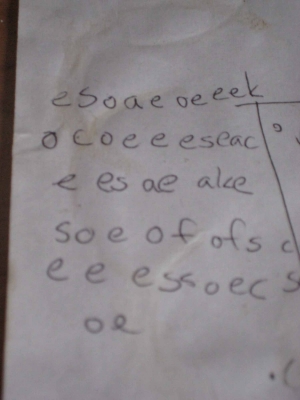 esoaeoeeek
ocoeeeseac
e es ae alce
so e of ofs c
e e essoec s
oe